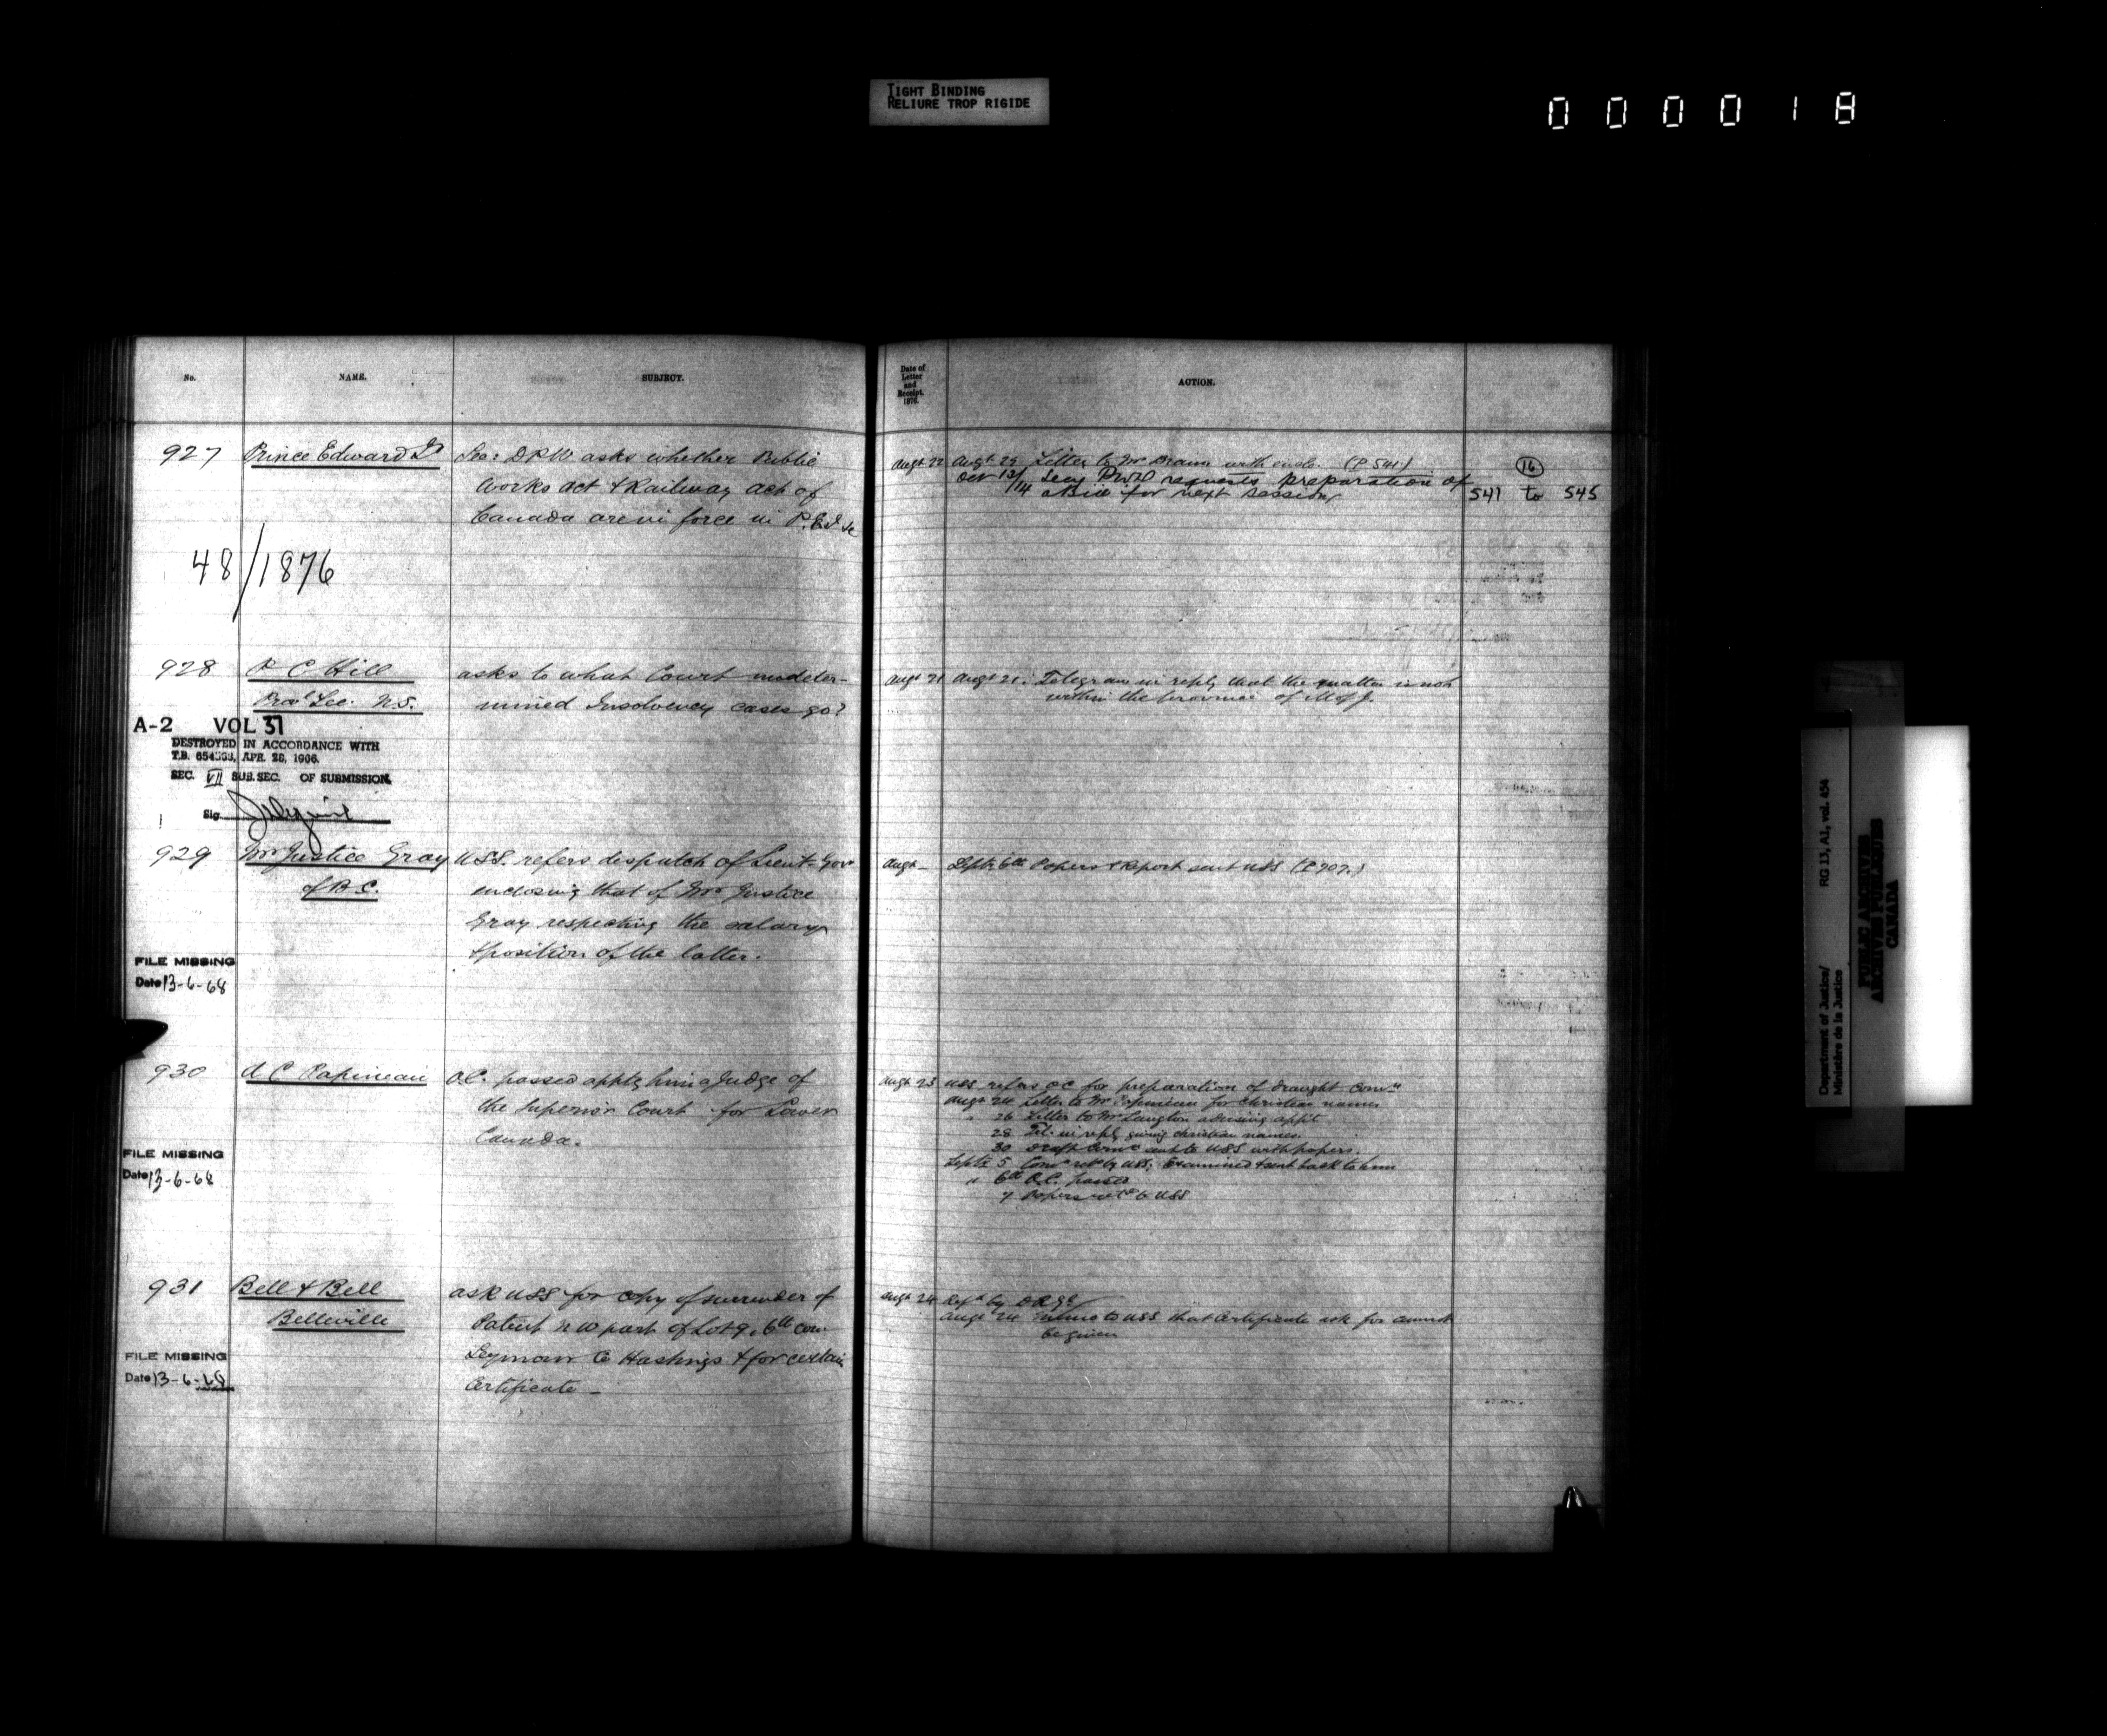 TIGHT BINDING
RELIURE TROP RIGIDE
000018
No.
NAME.
SUBJECT.
927
Prince Edward Id
Sec: DPW asks whether Public
Works act & Railway act of
Canada are in force in P.E.I &c
48/1876
928
P C Hill
Provl Sec. N.S.
asks to what Court undeter-
mined Insolvency cases go?
A-2 VOL 37
DESTROYED IN ACCORDANCE WITH
T.B. APR. 28, 1906.
SEC. VII SUB. SEC. OF SUBMISSION.
Sig.
929
Mr Justice Gray
of B.C.
USS. refers dispatch of Lieut-Gov
enclosing that of Mr Justice
Gray respecting the salary
& position of the latter.
FILE MISSING
Date 13-6-68
930
A C Papineau
O.C. passed apptg him a Judge of
the Superior Court for Lower
Canada.
FILE MISSING
Date 13-6-68
931
Bell & Bell
Belleville
ask USS for copy of surrender of
Patent N W part of Lot 9, 6th Con
Seymour Co Hastings & for certain
Certificate —
FILE MISSING
Date 13-6-68
Date of
Letter
and
Receipt,
1876.
ACTION.
Augt 22
Augt 29 Letter to Mr Braun with encls. (P 541)
Oct 13/14 Secy PWD requests preparation of
a Bill for next session
16
541 to 545
Augt 21
Augt 21. Telegram in reply that the matter is not
within the province of M of J.
Augt —
Septr 6th Papers & Report sent USS (P 707.)
Augt 23
USS refers OC for preparation of draught Comn
Augt 24 Letter to Mr Papineau for christian names
" 26 Letter to Mr Langton advising appt
28 Tel. in reply giving christian names.
30 Draft Comn sent to USS with papers.
Septr 5 Comn retd by USS. Examined & sent back to him
" 6th O.C. passed
7 Papers retd to USS
Augt 24
Refd by
Augt 24 Memo to USS that Certificate ask for cannot
be given
Department of Justice/
Ministère de la Justice
RG 13, A1, vol. 454
PUBLIC ARCHIVES
ARCHIVES PUBLIQUES
CANADA